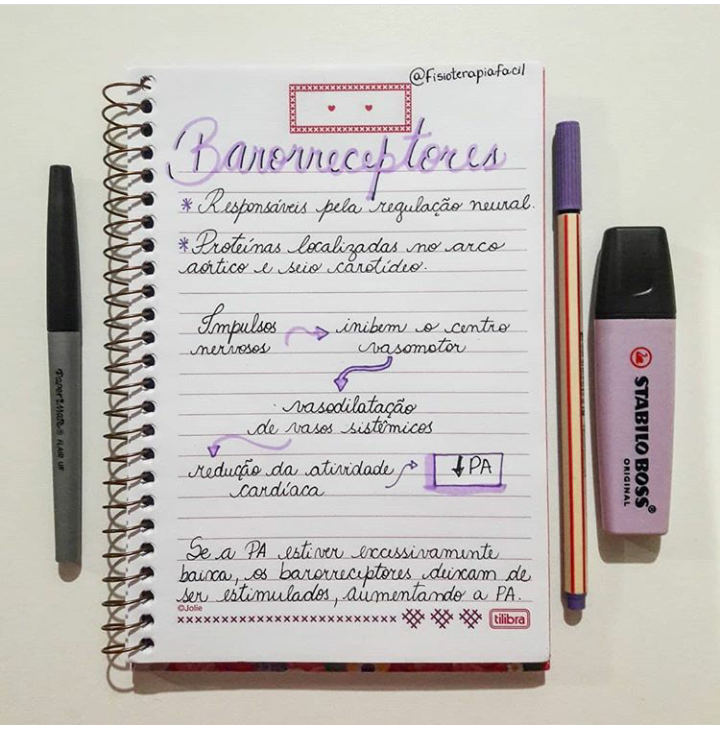 @fisioterapiafacil
Barorreceptores
* Responsáveis pela regulação neural.
* Proteínas localizadas no arco
aórtico e seio carotídeo.
Impulsos → inibem o centro
nervosos vasomotor
vasodilatação
de vasos sistêmicos
redução da atividade → ↓ PA
cardíaca
Se a PA estiver excessivamente
baixa, os barorreceptores deixam de
ser estimulados, aumentando a PA.
©Jolie
tilibra
Paper:Mate® FLAIR UF
STABILO BOSS®
ORIGINAL